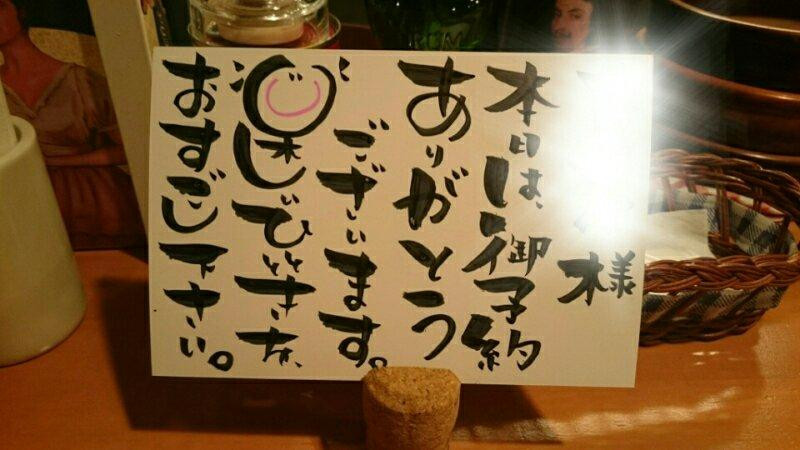 様
本日は、御予約
ありがとう
ございます。
楽しいひとときを、
おすごし下さい。
RUM